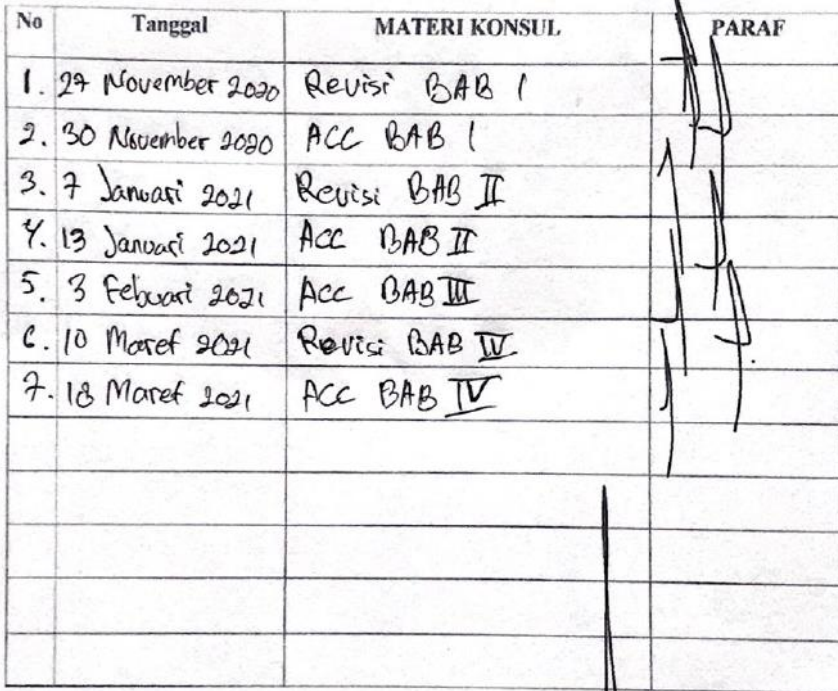 No Tanggal MATERI KONSUL PARAF
1. 27 November 2020 Revisi BAB I
2. 30 November 2020 ACC BAB I
3. 7 Januari 2021 Revisi BAB II
4. 13 Januari 2021 Acc BAB II
5. 3 Febuari 2021 Acc BAB III
6. 10 Maret 2021 Revisi BAB IV
7. 18 Maret 2021 ACC BAB IV